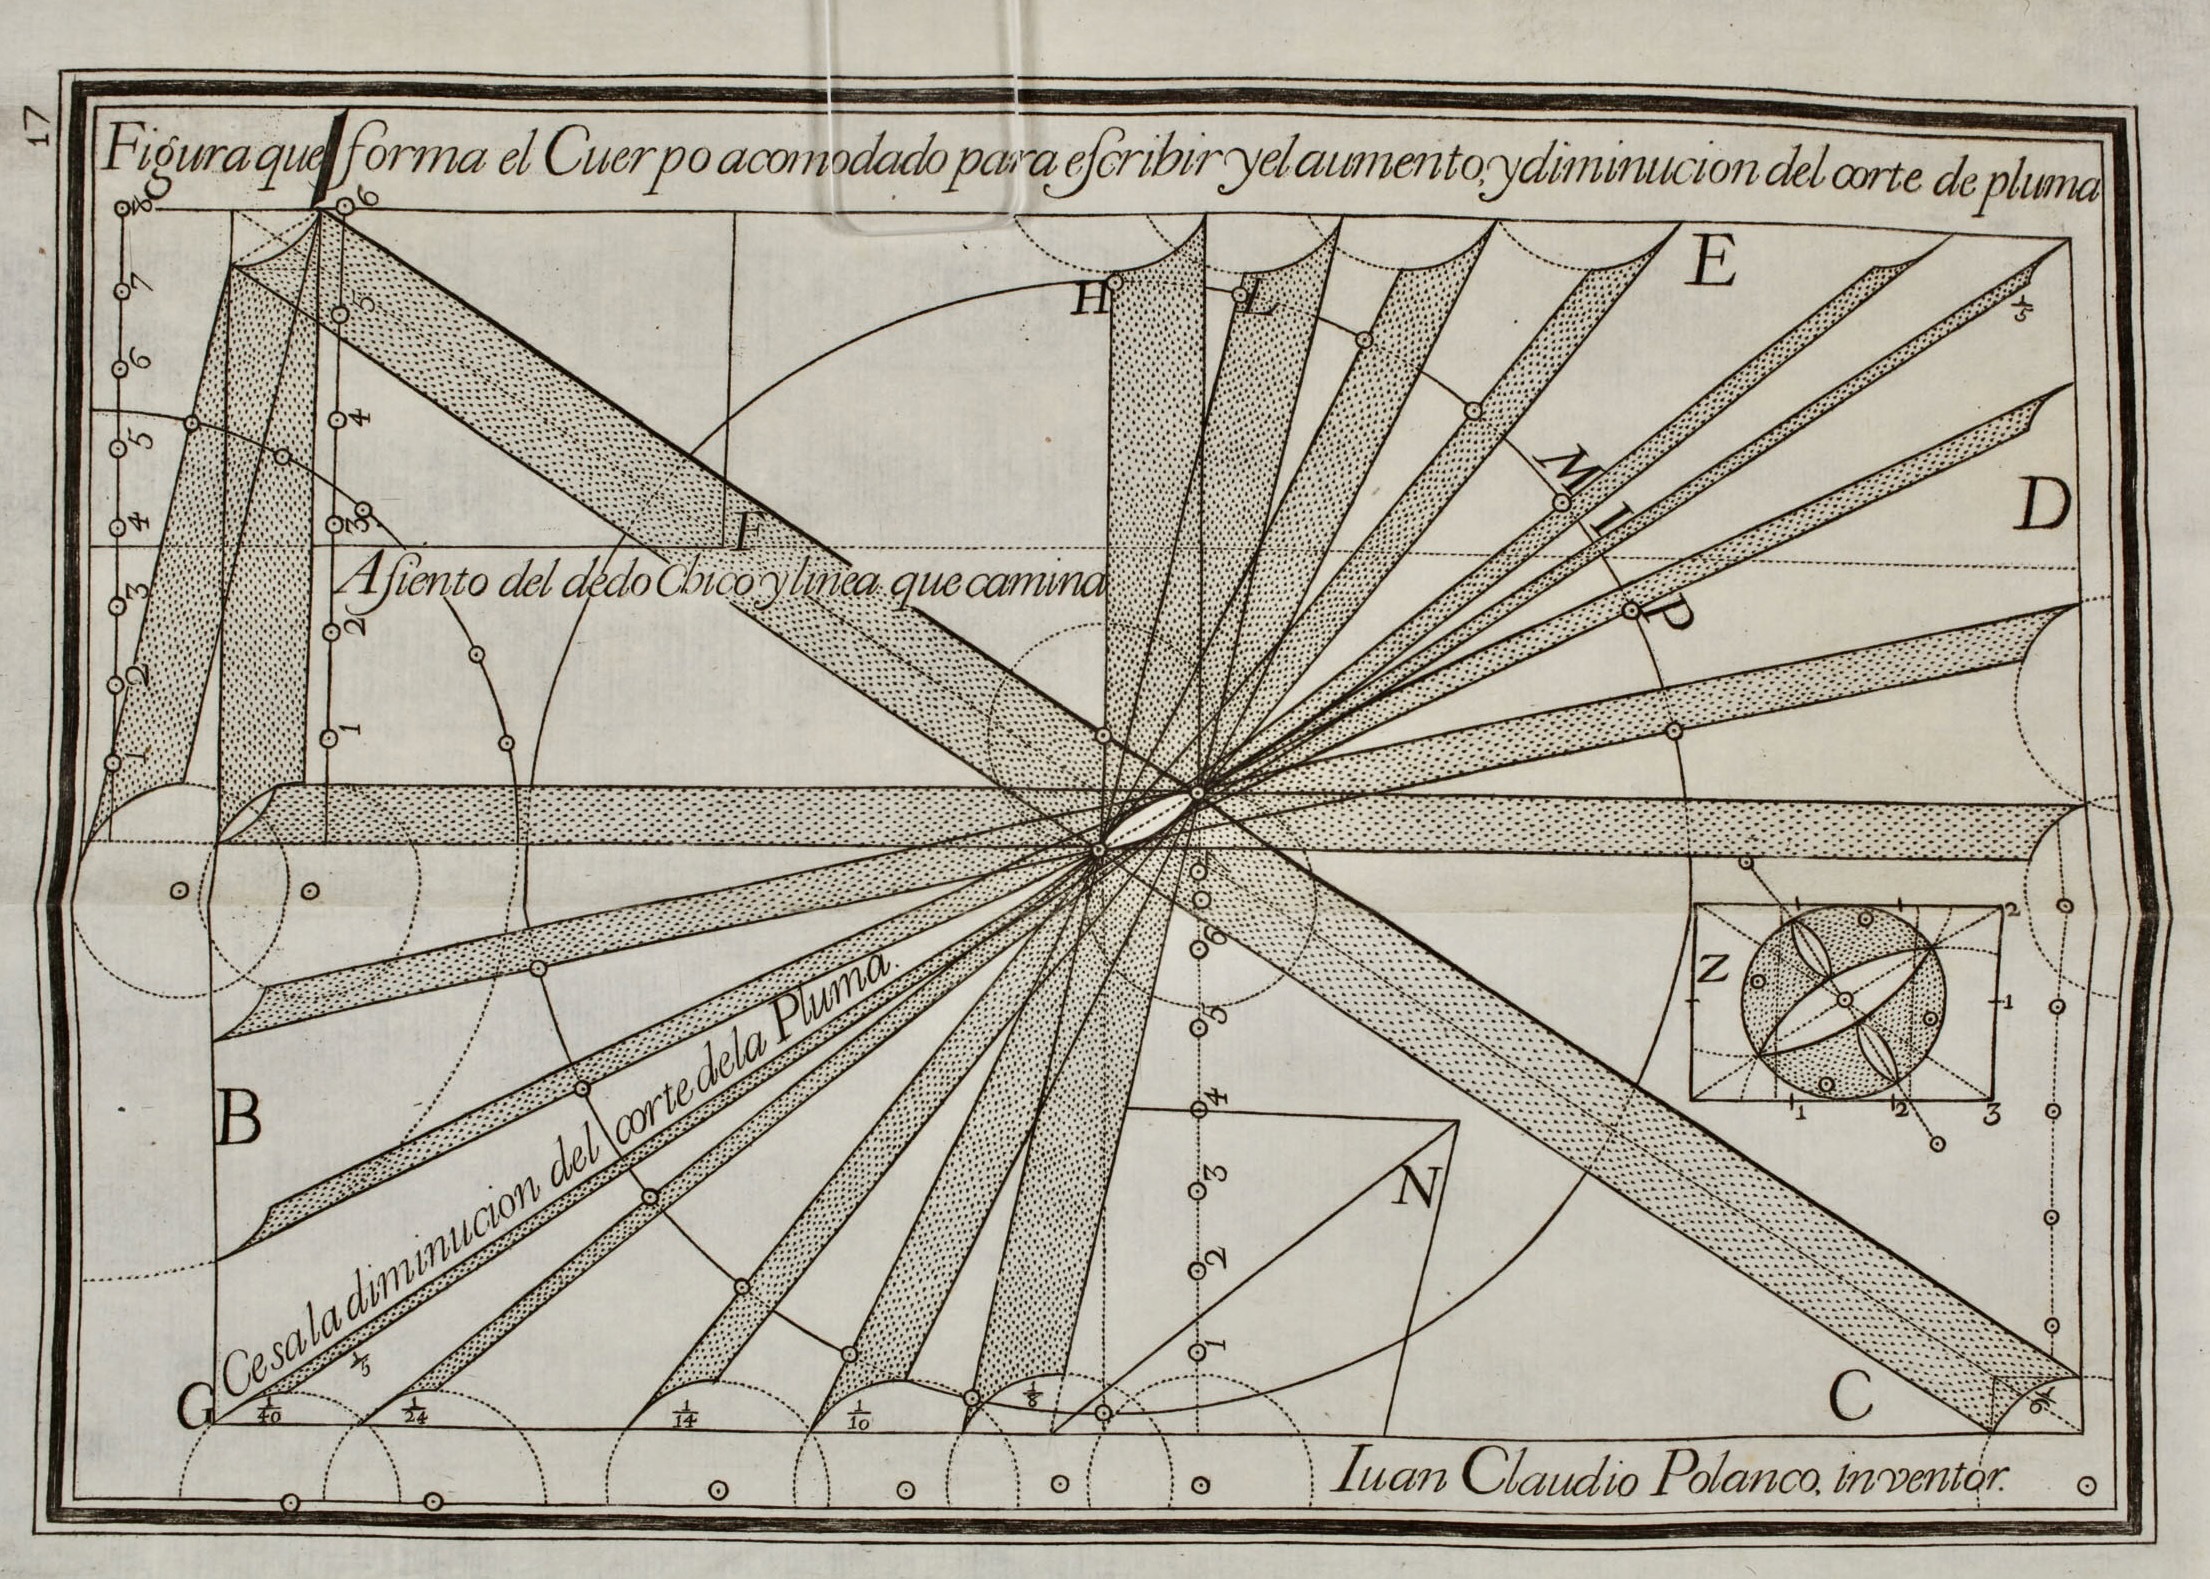 17
Figura que forma el Cuerpo acomodado para eſcribir y el aumento, y diminucion del corte de pluma
8 7 6 5 4 3 2 1
6 5 4 3 2 1
H L E
M I P
1/5
D
F
Aſiento del dedo Chico y linea que camina
B
Cesa la diminucion del corte de la Pluma.
6 5 4 3 2 1
Z 2 1
1 2 3
N
G
1/5
1/40 1/24 1/14 1/10 1/8
C
Iuan Claudio Polanco, inventor.